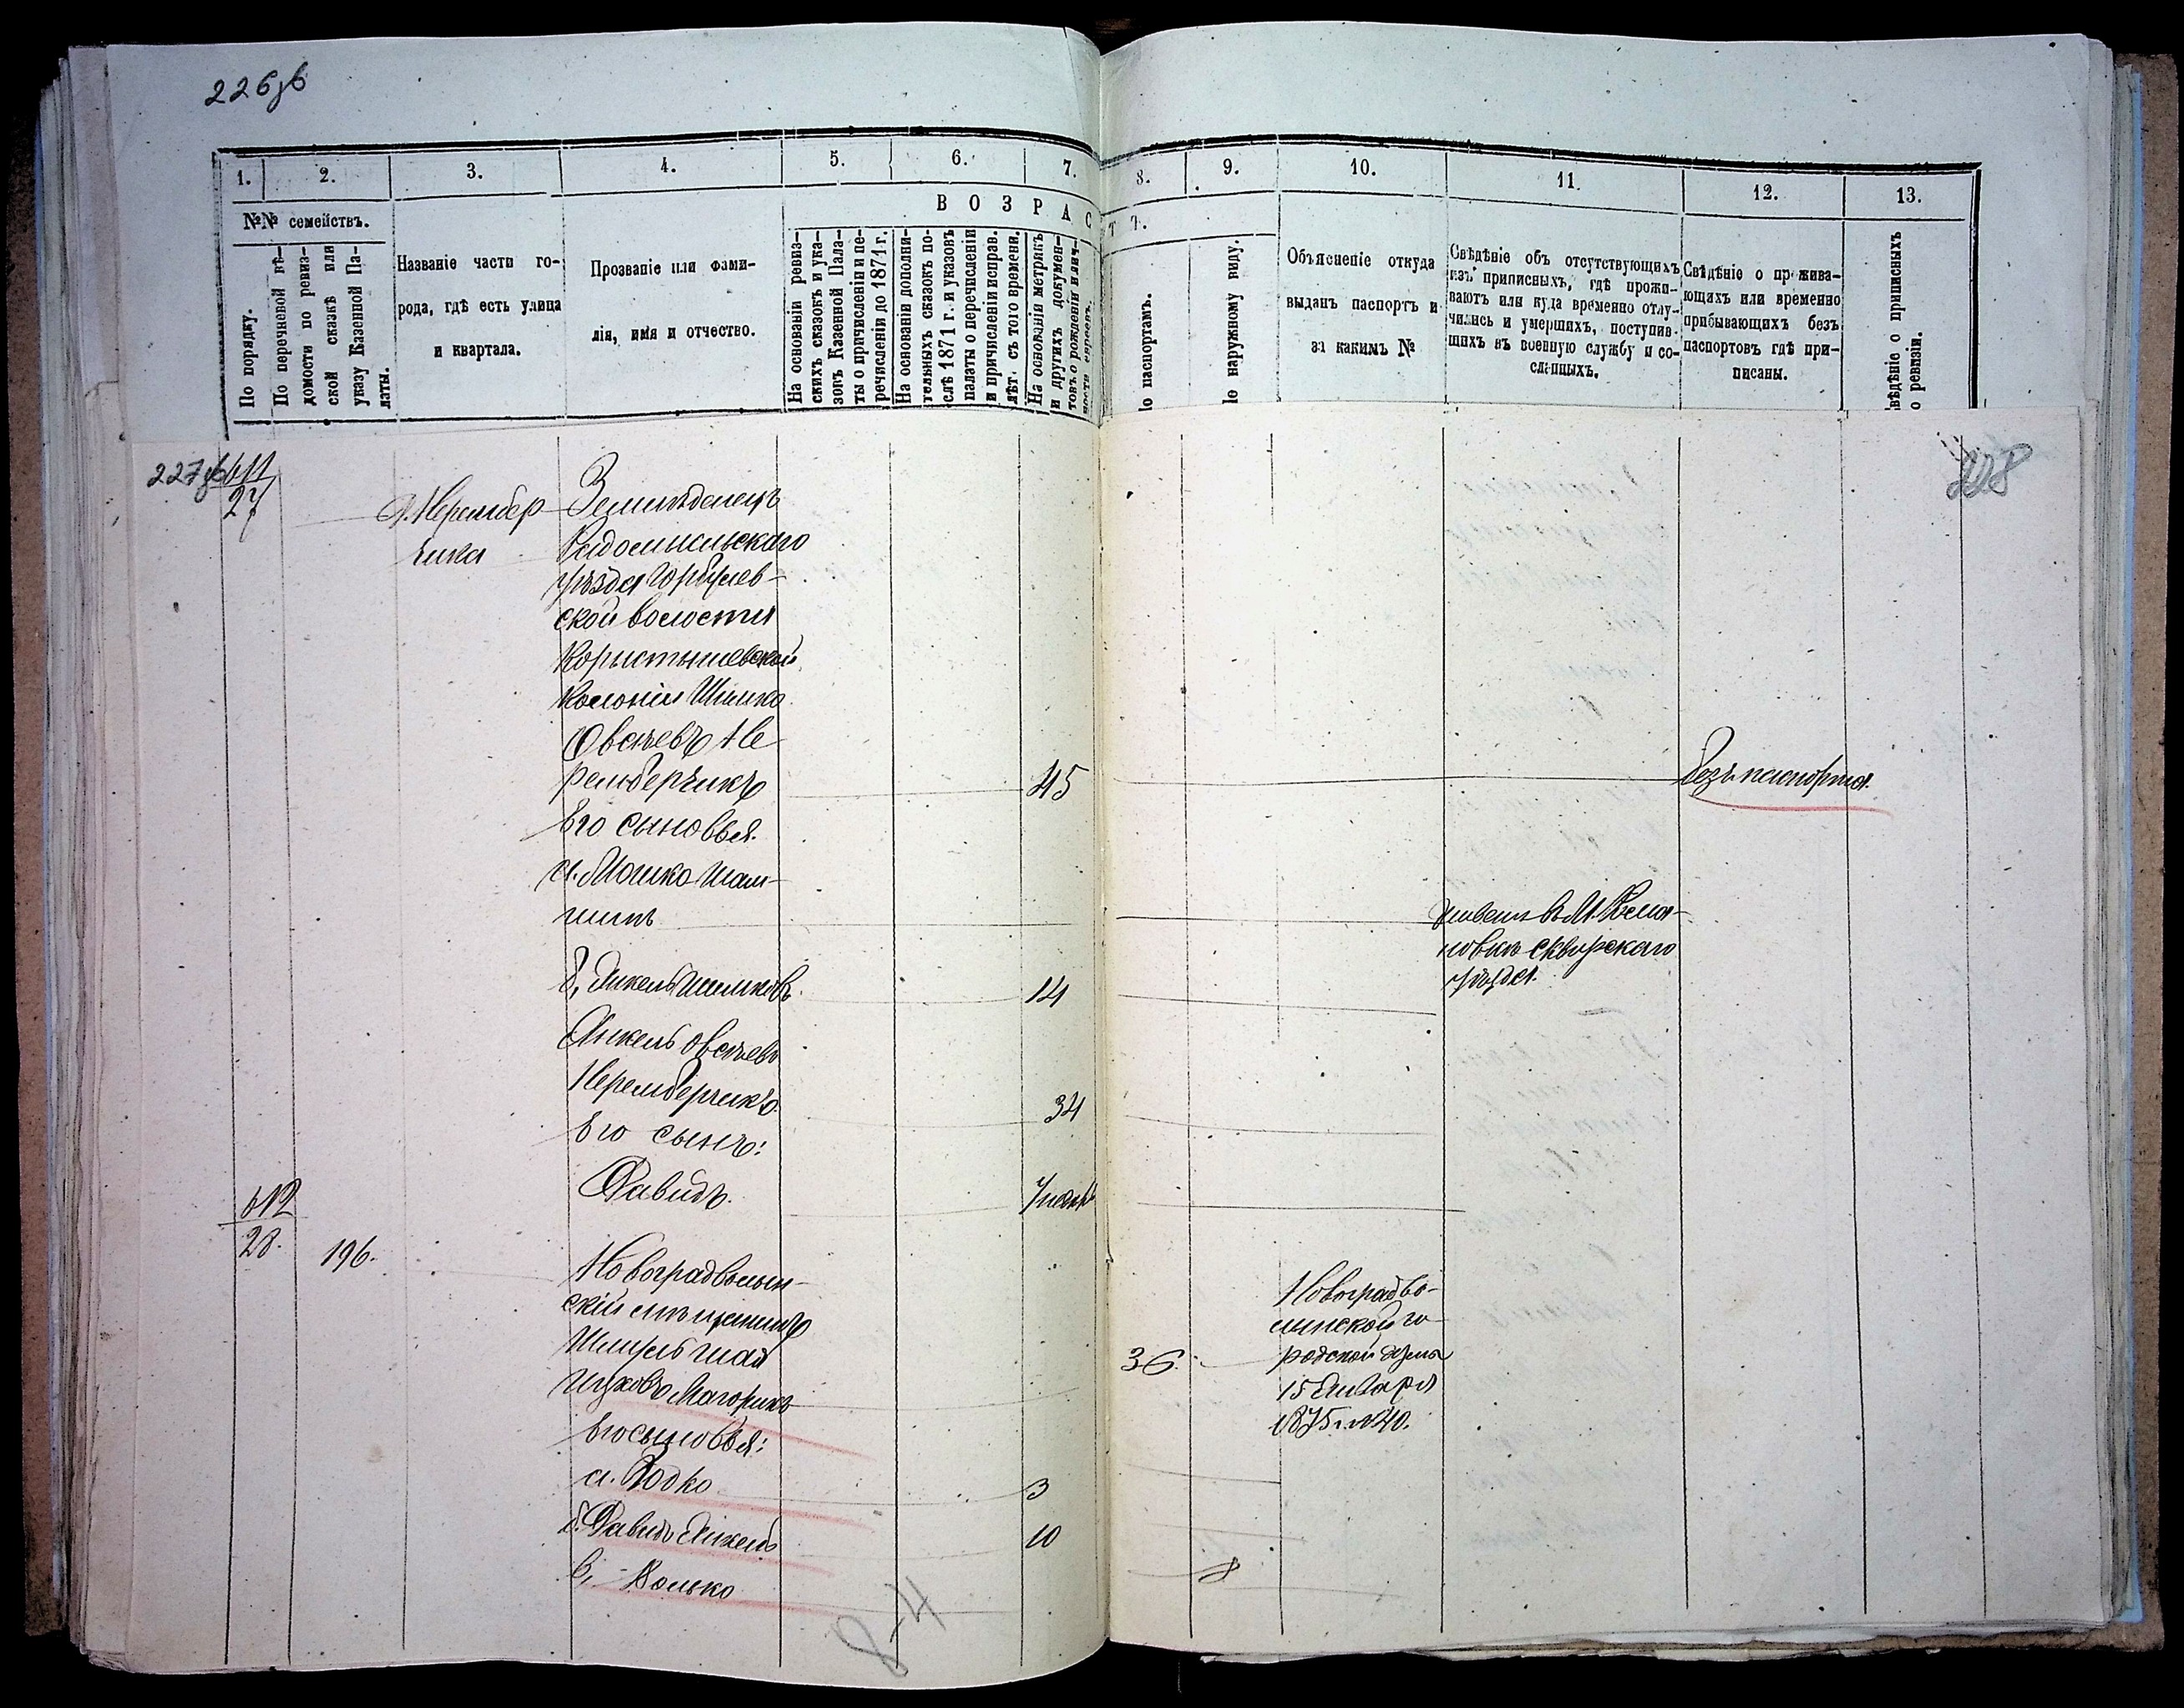 226зв
1.
2.
3.
4.
5.
6.
7.
8.
9.
10.
11.
12.
13.
В О З Р А С Т Ъ.
№№ семействъ.
По порядку.
По перечневой вѣ-
домости по ревиз-
ской сказкѣ или
указу Казенной Па-
латы.
Названіе части го-
рода, гдѣ есть улица
и квартала.
Прозваніе или фами-
лія, имя и отчество.
На основаніи ревиз-
скихъ сказокъ и ука-
зовъ Казенной Пала-
ты о причисленіи и пе-
речисленіи до 1871 г.
На основаніи дополни-
тельныхъ сказокъ по-
слѣ 1871 г. и указовъ
палаты о перечисленіи
и причисленіи исправ.
лѣт. съ того времени.
На основаніи метрикъ
и другихъ докумен-
товъ о рожденіи и лич-
ности евреевъ.
По паспортамъ.
По наружному виду.
Объясненіе откуда
выданъ паспортъ и
за какимъ №
Свѣдѣніе об отсутствующихъ
изъ приписныхъ, гдѣ прожи-
ваютъ или куда временно отлу-
чились и умершихъ, поступив-
шихъ въ военную службу и со-
сланныхъ.
Свѣдѣніе о прожива-
ющихъ или временно
прибывающихъ безъ
паспортовъ гдѣ при-
писаны.
Свѣдѣніе о приписныхъ
по ревизіи.
227зв
611
27
228
Земледелецъ
Радомысльскаго
уѣзда Горбулев-
ской волости
Колоніи Шимко
Овсѣевъ Не
ремберчикъ
45
безъ паспорта.
Его сыновья.
а. Мошко
живетъ въ М.
новкѣ Сквирскаго
уѣзда.
б, Янкель Шимковъ.
14
Янкель Овсѣевъ
Неремберчикъ.
34
Его сынъ:
Давидъ.
612
28.
196.
Новоградволын-
скій мѣщанинъ
Шмуль
36.
Новоградво-
линской го
родской думы
15 Января
1875 г. №40.
Его сыновья:
а. Юдко
3
б. Давидъ Янкель
10
в, Волько
8
8-4